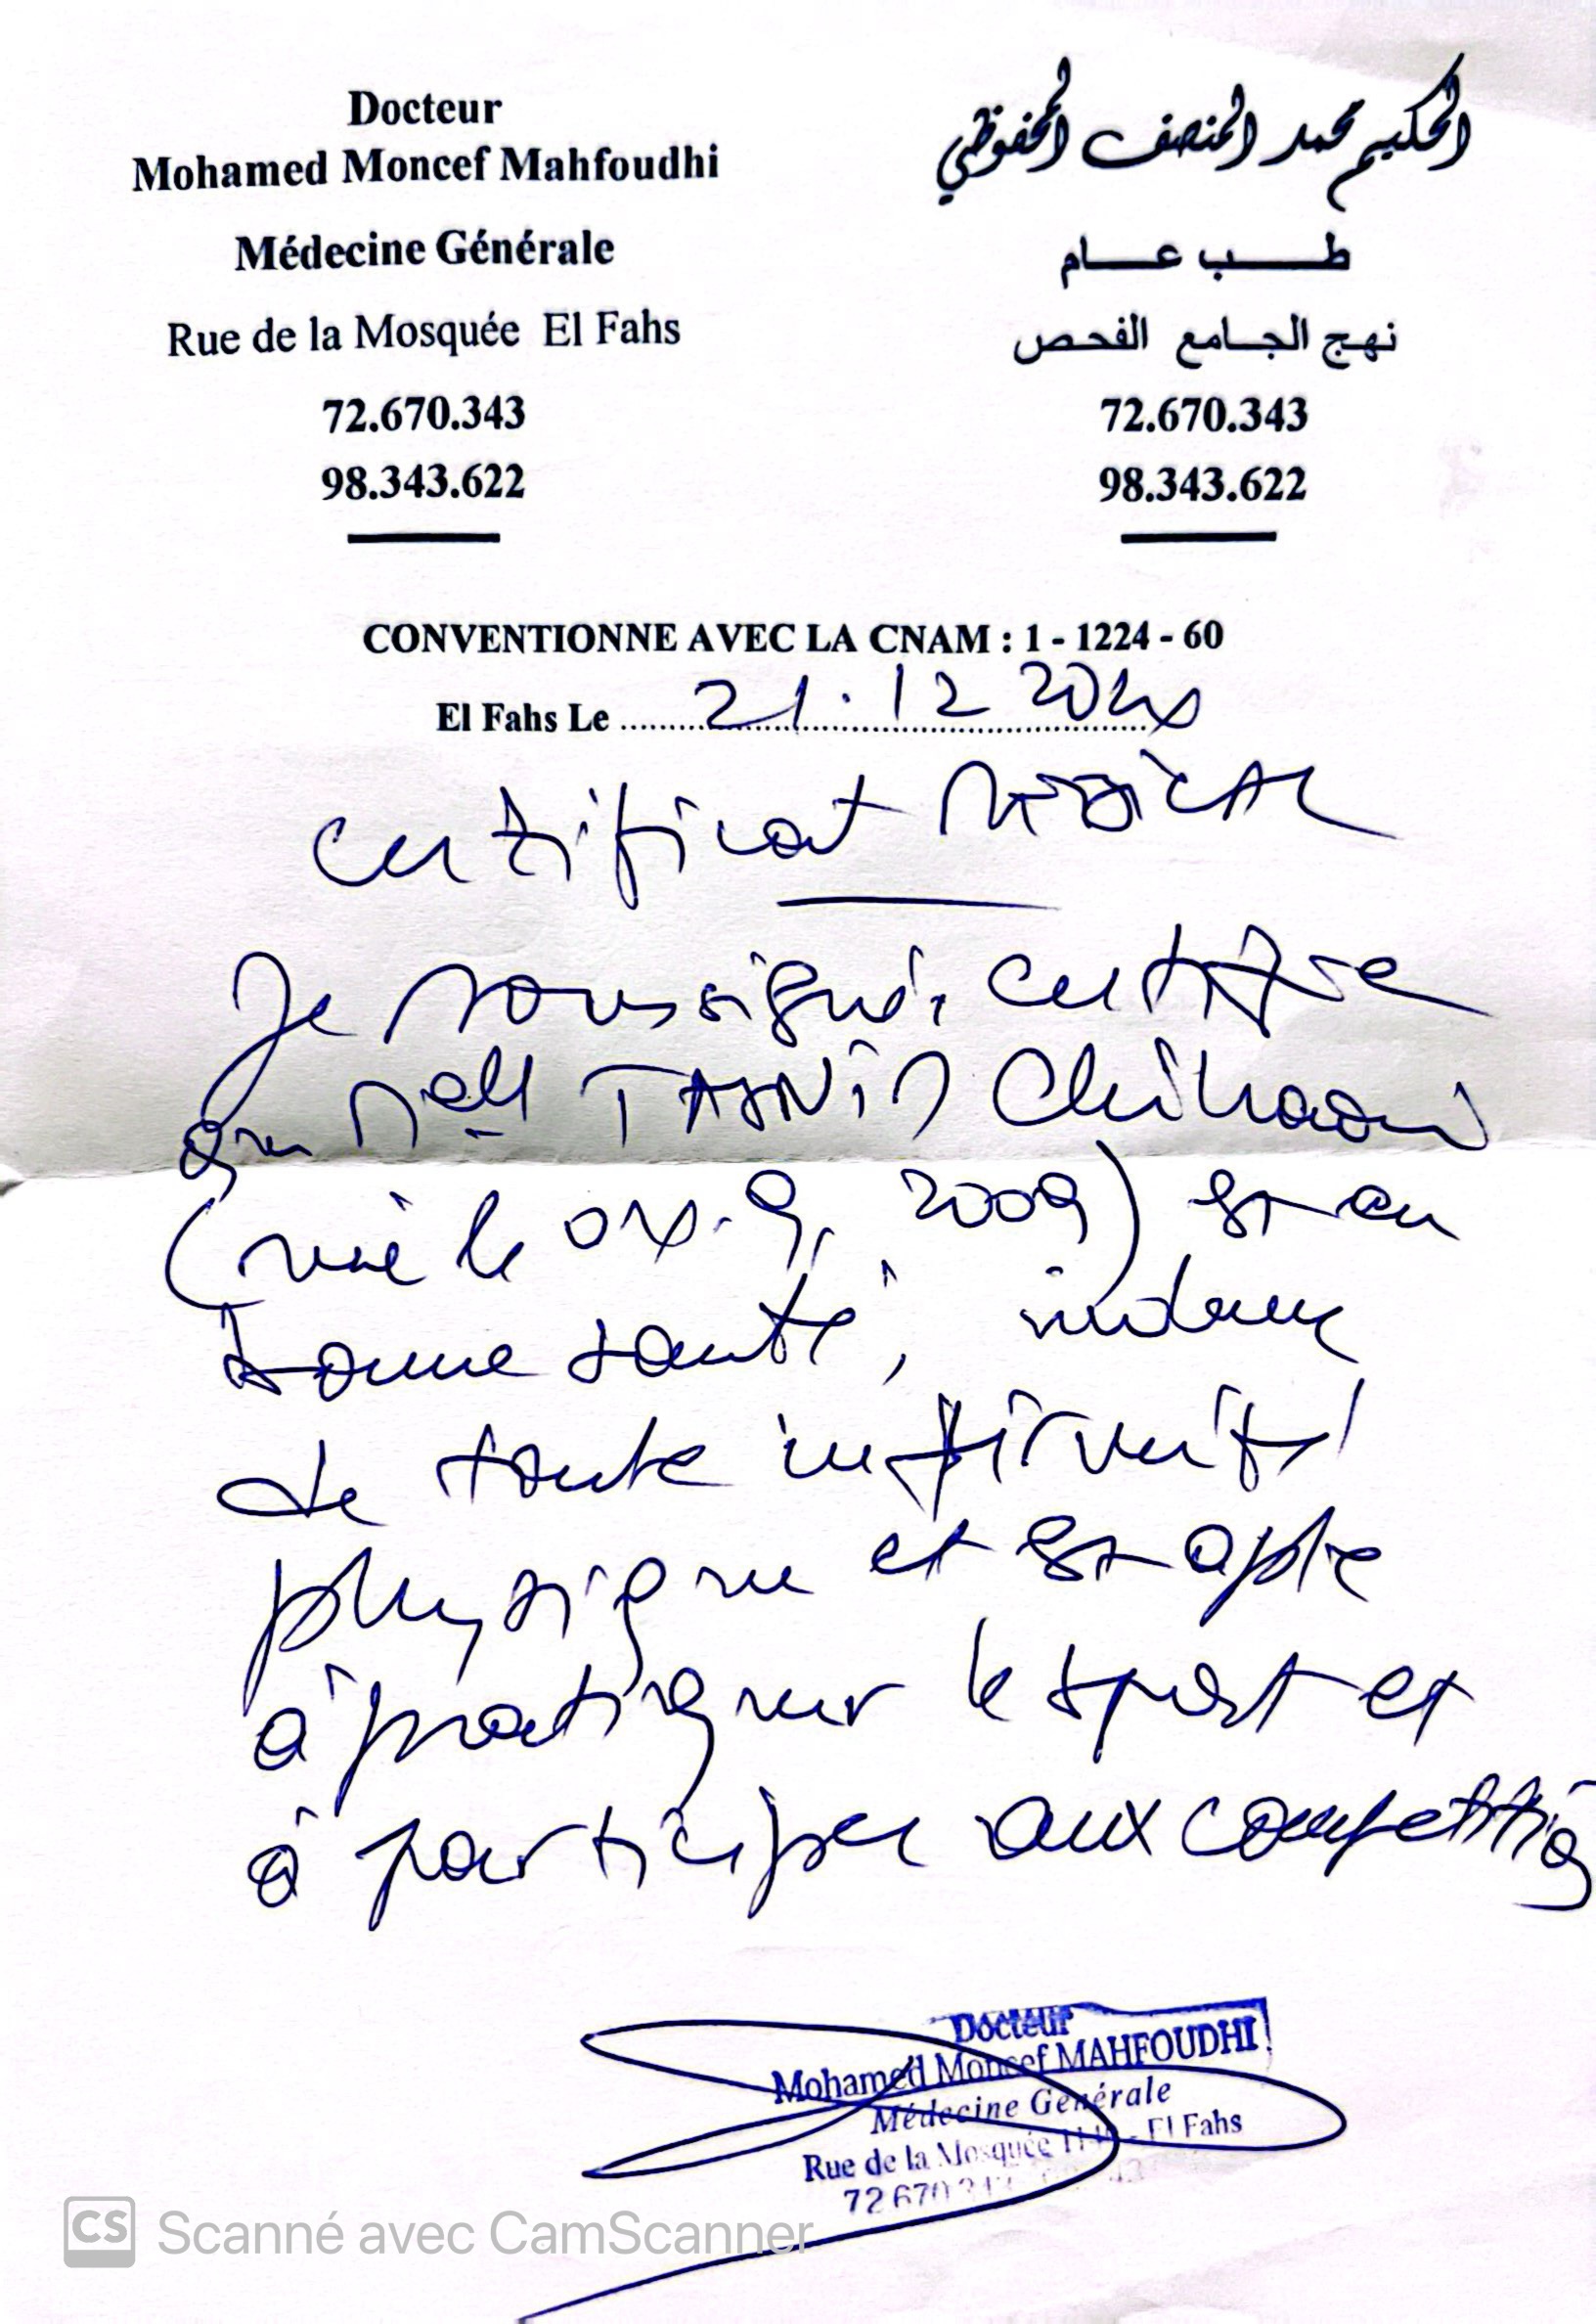 Docteur
Mohamed Moncef Mahfoudhi
Médecine Générale
Rue de la Mosquée El Fahs
72.670.343
98.343.622
الحكيم محمد المنصف المحفوظي
طب عام
نهج الجامع الفحص
72.670.343
98.343.622
CONVENTIONNE AVEC LA CNAM : 1 - 1224 - 60
El Fahs Le 21.12
Certificat MEDICAL
Je soussigné, certifie
que Melle TASNIM
(née le 2009) est en
bonne santé, indemne
de toute infirmité
physique et est apte
à pratiquer le sport et
à participer aux
Docteur
Mohamed Moncef MAHFOUDHI
Médecine Générale
Rue de la Mosquée - El Fahs
72 670
CS Scanné avec CamScanner